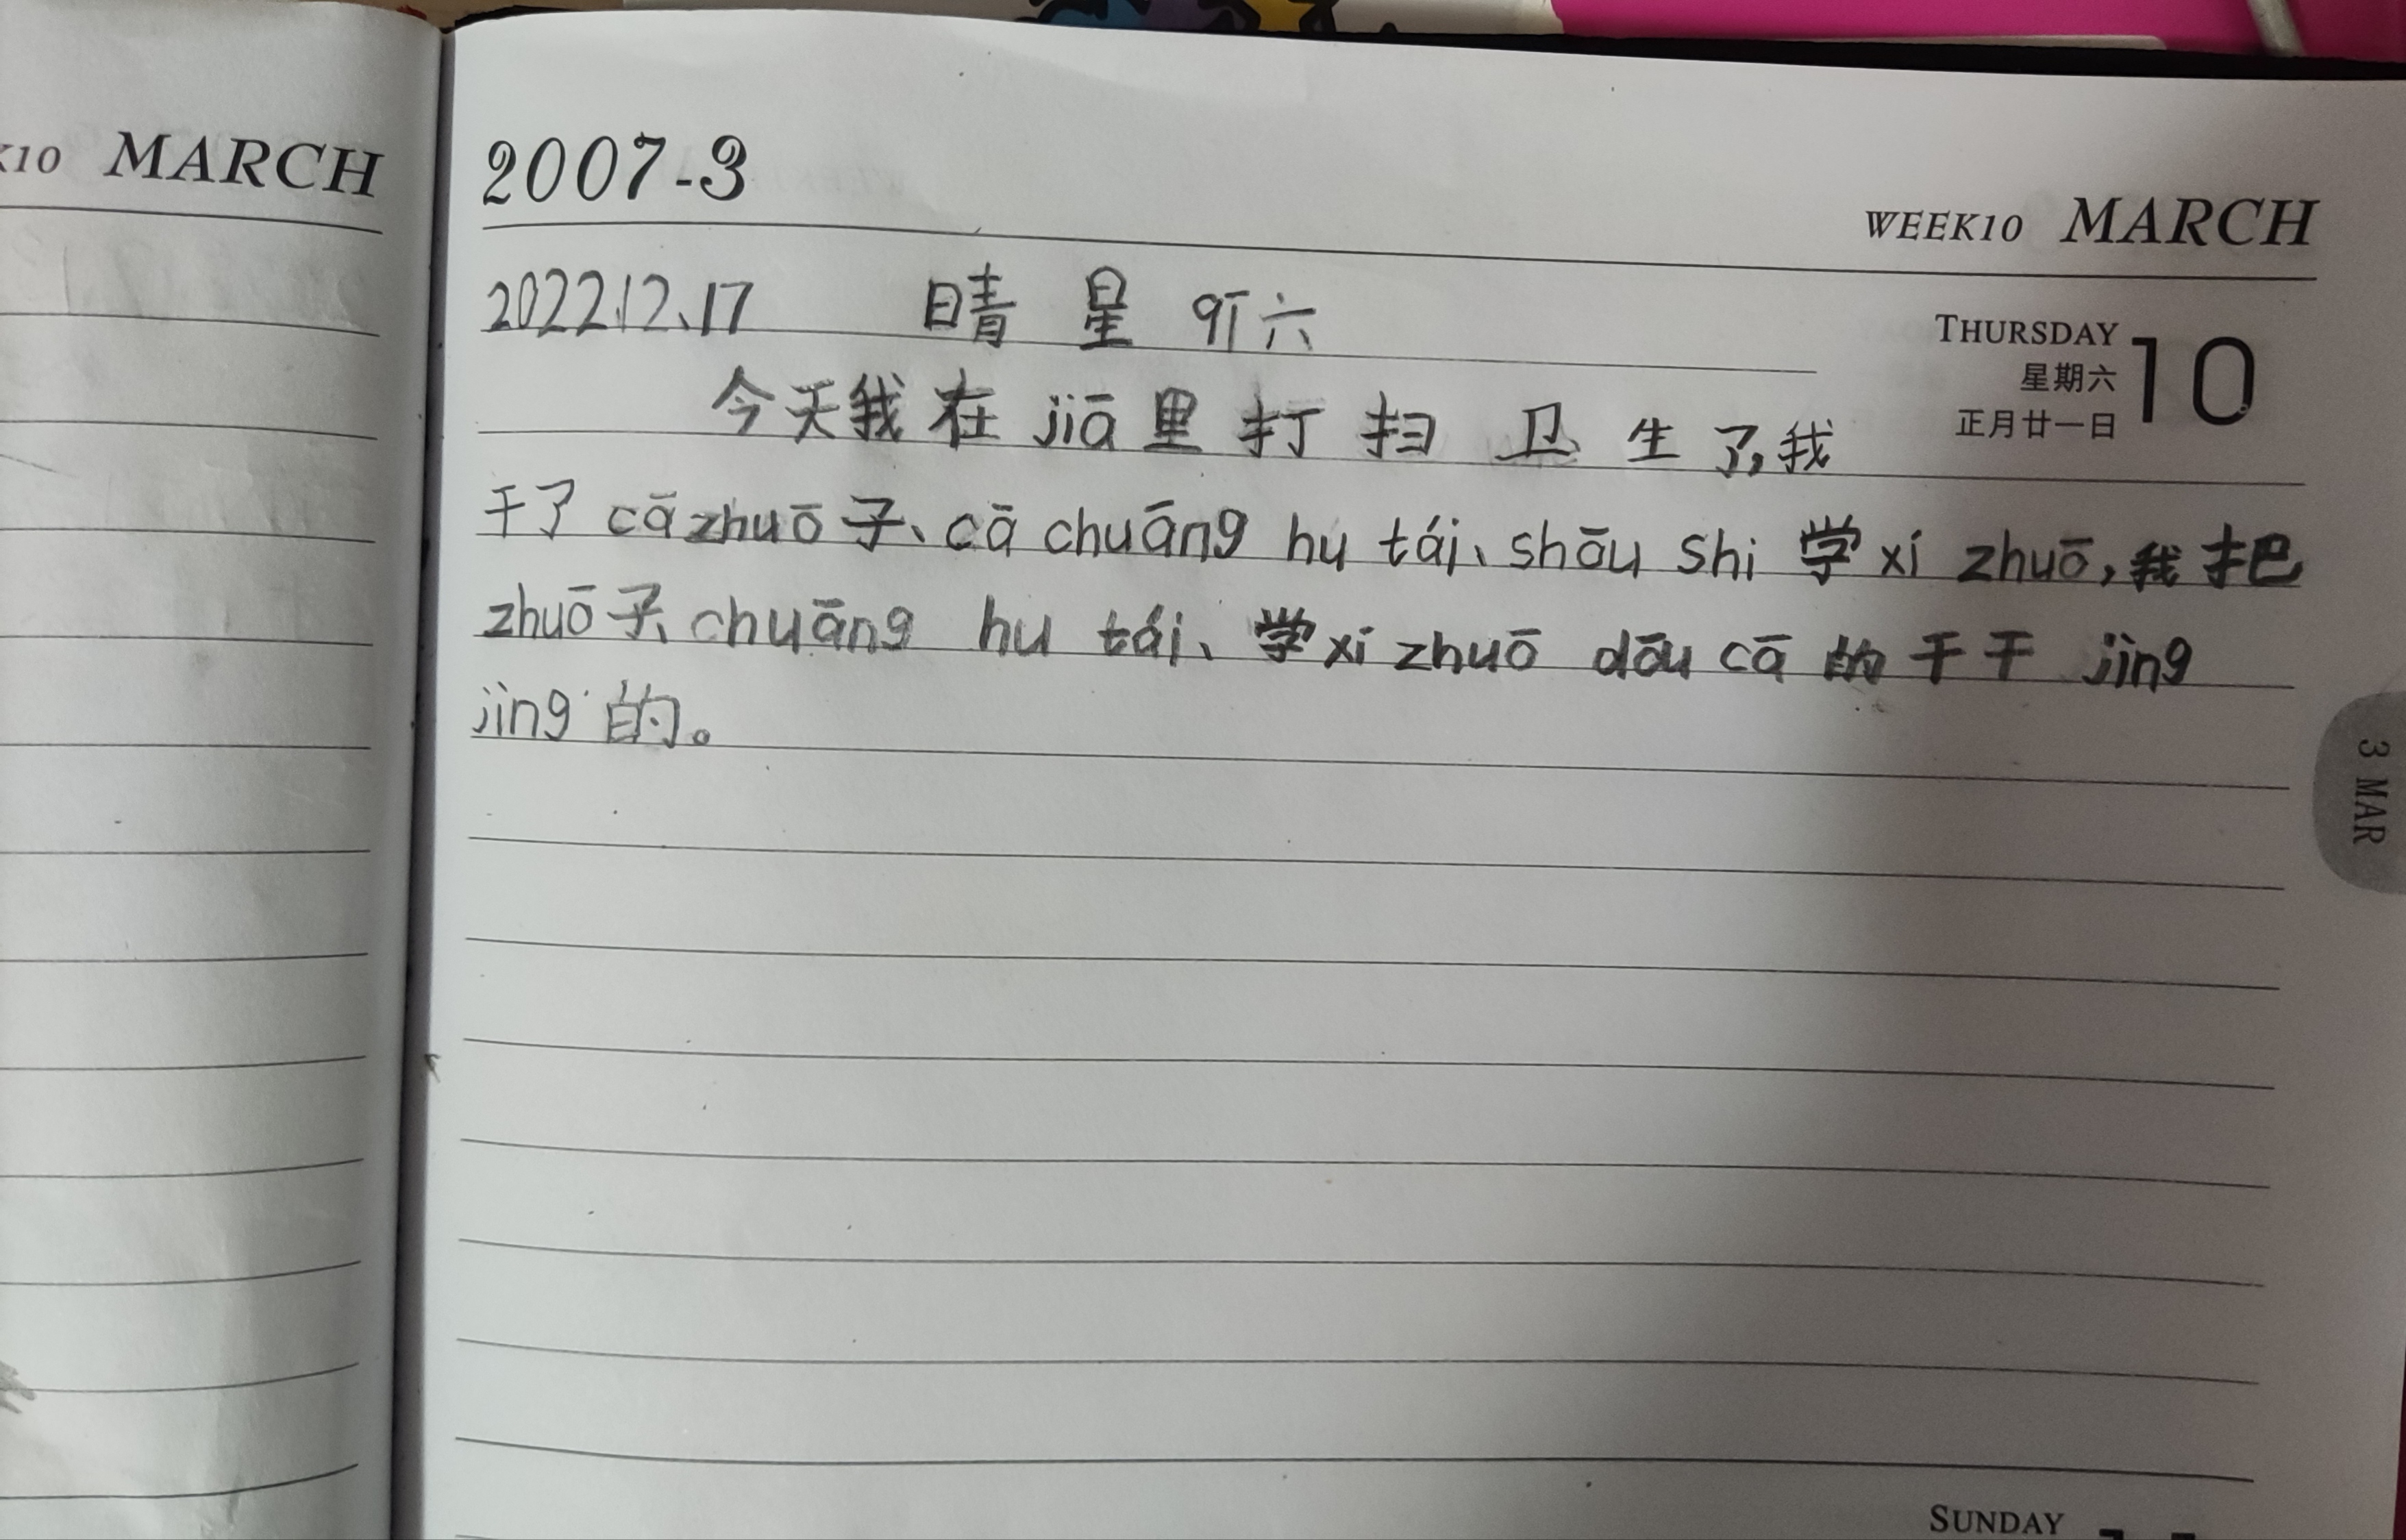 K10 MARCH
2007-3
WEEK10 MARCH
2022.12、17 晴 星 qī六
THURSDAY 10
星期六
正月廿一日
今天我在jiā里打扫卫生了,我
干了cāzhuō子、cā chuāng hu tái、shōu shi 学xí zhuō,我把
zhuō子、chuāng hu tái、学xí zhuō dōu cā的干干jìng
jìng的。
3 MAR
SUNDAY